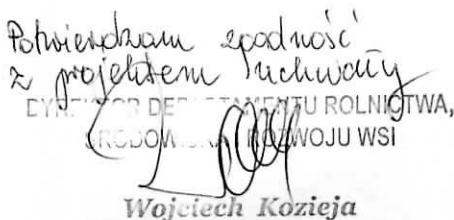 Potwierdzam zgodność
z projektem uchwały
DYREKTOR DEPARTAMENTU ROLNICTWA,
ŚRODOWISKA I ROZWOJU WSI
Wojciech Kozieja